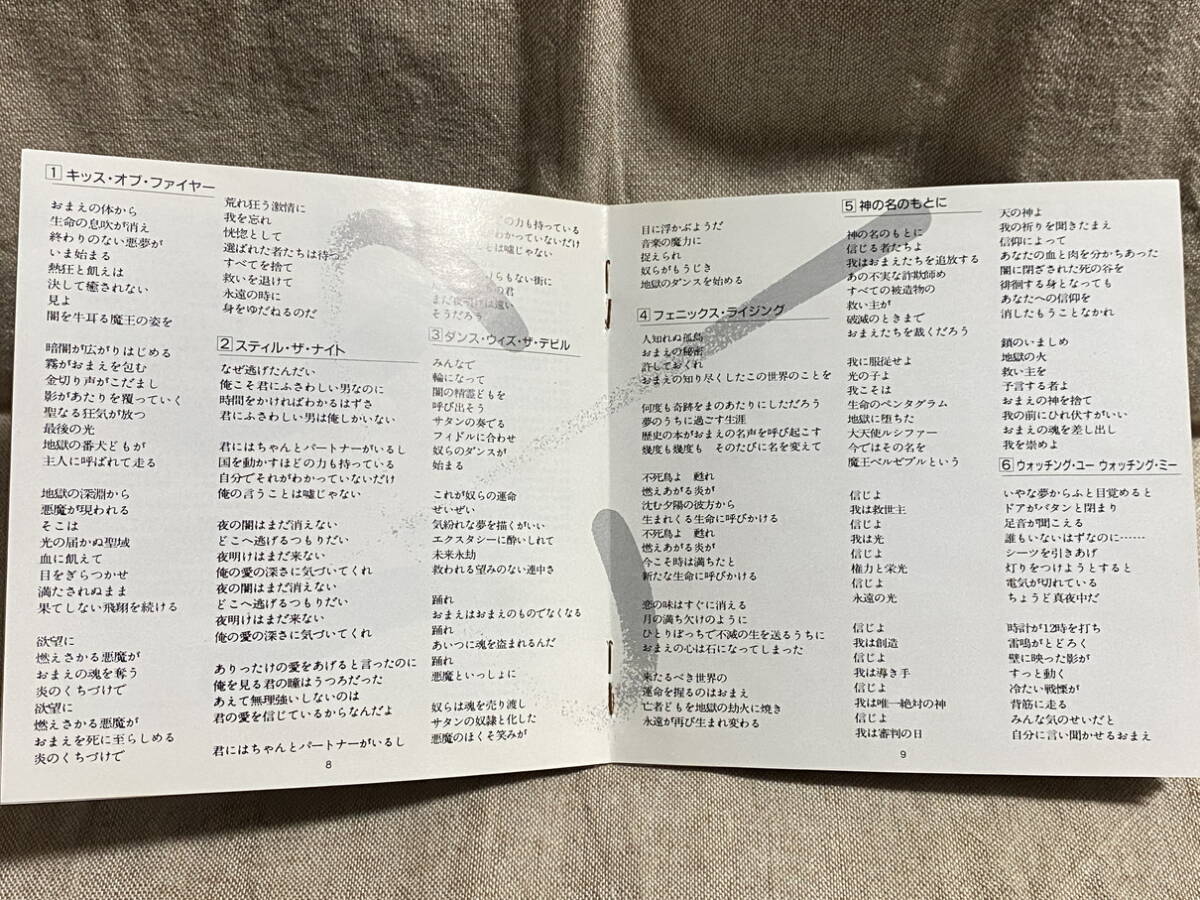 1 キッス・オブ・ファイヤー
おまえの体から
生命の息吹が消え
終わりのない悪夢が
いま始まる
熱狂と飢えは
決して癒されない
見よ
闇を牛耳る魔王の姿を
暗闇が広がりはじめる
霧がおまえを包む
金切り声がこだまし
影があたりを覆っていく
聖なる狂気が放つ
最後の光
地獄の番犬どもが
主人に呼ばれて走る
地獄の深淵から
悪魔が現われる
そこは
光の届かぬ聖域
血に飢えて
目をぎらつかせ
満たされぬまま
果てしない飛翔を続ける
欲望に
燃えさかる悪魔が
おまえの魂を奪う
炎のくちづけで
欲望に
燃えさかる悪魔が
おまえを死に至らしめる
炎のくちづけで
荒れ狂う激情に
我を忘れ
恍惚として
選ばれた者たちは待つ
すべてを捨て
救いを退けて
永遠の時に
身をゆだねるのだ
2 スティル・ザ・ナイト
なぜ逃げたんだい
俺こそ君にふさわしい男なのに
時間をかければわかるはずさ
君にふさわしい男は俺しかいない
君にはちゃんとパートナーがいるし
国を動かすほどの力も持っている
自分でそれがわかっていないだけ
俺の言うことは嘘じゃない
夜の闇はまだ消えない
どこへ逃げるつもりだい
夜明けはまだ来ない
俺の愛の深さに気づいてくれ
夜の闇はまだ消えない
どこへ逃げるつもりだい
夜明けはまだ来ない
俺の愛の深さに気づいてくれ
ありったけの愛をあげると言ったのに
俺を見る君の瞳はうつろだった
あえて無理強いしないのは
君の愛を信じているからなんだよ
君にはちゃんとパートナーがいるし
8
どの力も持っている
わかっていないだけ
とは嘘じゃない
りらもない街に
の君
まだ夜明けは遠い
そうだろう
3 ダンス・ウィズ・ザ・デビル
みんなで
輪になって
闇の精霊どもを
呼び出そう
サタンの奏でる
フィドルに合わせ
奴らのダンスが
始まる
これが奴らの運命
せいぜい
気紛れな夢を描くがいい
エクスタシーに酔いしれて
未来永劫
救われる望みのない連中さ
踊れ
おまえはおまえのものでなくなる
踊れ
あいつに魂を盗まれるんだ
踊れ
悪魔といっしょに
奴らは魂を売り渡し
サタンの奴隷と化した
悪魔のほくそ笑みが
目に浮かぶようだ
音楽の魔力に
捉えられ
奴らがもうじき
地獄のダンスを始める
4 フェニックス・ライジング
人知れぬ孤島
おまえの秘密
許しておくれ
おまえの知り尽くしたこの世界のことを
何度も奇跡をまのあたりにしただろう
夢のうちに過ごす生涯
歴史の本がおまえの名声を呼び起こす
幾度も幾度も　そのたびに名を変えて
不死鳥よ　甦れ
燃えあがる炎が
沈む夕陽の彼方から
生まれくる生命に呼びかける
不死鳥よ　甦れ
燃えあがる炎が
今こそ時は満ちたと
新たな生命に呼びかける
恋の味はすぐに消える
月の満ち欠けのように
ひとりぼっちで不滅の生を送るうちに
おまえの心は石になってしまった
来たるべき世界の
運命を握るのはおまえ
亡者どもを地獄の劫火に焼き
永遠が再び生まれ変わる
5 神の名のもとに
神の名のもとに
信じる者たちよ
我はおまえたちを追放する
あの不実な詐欺師め
すべての被造物の
救い主が
破滅のときまで
おまえたちを裁くだろう
我に服従せよ
光の子よ
我こそは
生命のペンタグラム
地獄に堕ちた
大天使ルシファー
今ではその名を
魔王ベルゼブルという
信じよ
我は救世主
信じよ
我は光
信じよ
権力と栄光
信じよ
永遠の光
信じよ
我は創造
信じよ
我は導き手
信じよ
我は唯一絶対の神
信じよ
我は審判の日
9
天の神よ
我の祈りを聞きたまえ
信仰によって
あなたの血と肉を分かちあった
闇に閉ざされた死の谷を
徘徊する身となっても
あなたへの信仰を
消したもうことなかれ
鎖のいましめ
地獄の火
救い主を
予言する者よ
おまえの神を捨て
我の前にひれ伏すがいい
おまえの魂を差し出し
我を崇めよ
6 ウォッチング・ユー ウォッチング・ミー
いやな夢からふと目覚めると
ドアがバタンと閉まり
足音が聞こえる
誰もいないはずなのに……
シーツを引きあげ
灯りをつけようとすると
電気が切れている
ちょうど真夜中だ
時計が12時を打ち
雷鳴がとどろく
壁に映った影が
すっと動く
冷たい戦慄が
背筋に走る
みんな気のせいだと
自分に言い聞かせるおまえ